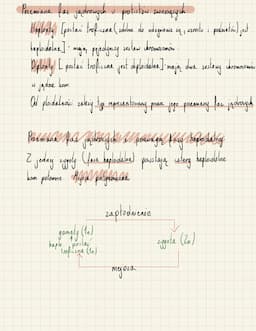 Przemiana faz jądrowych u protistów zwierzęcych
Haploidy [postać troficzna (zdolna do odżywiania się, wzrostu i podziałów) jest
haploidalna] : mają pojedynczy zestaw chromosomów
Diploidy [postać troficzna jest diploidalna] mają dwa zestawy chromosomów
w jądrze kom
Od ploidalności zależy typ reprezentowany przez jego przemianę faz jądrowych
Przemiana faz jądrowych z przewagą fazy haploidalnej
Z jednej zygoty (faza diploidalna) powstają cztery haploidalne
kom potomne
zapłodnienie
gamety (1n)
hapl. postać
troficzna (1n)
zygota (2n)
mejoza